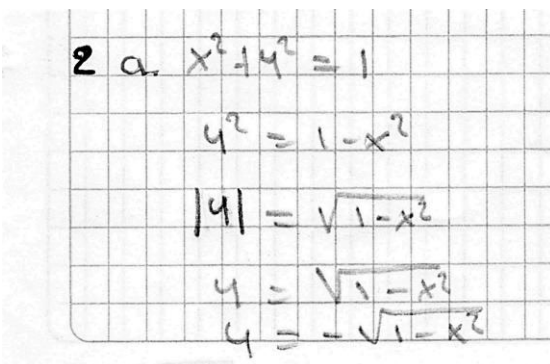 2 a. x²+y² = 1
y² = 1-x²
|y| = √1-x²
y = √1-x²
y = -√1-x²